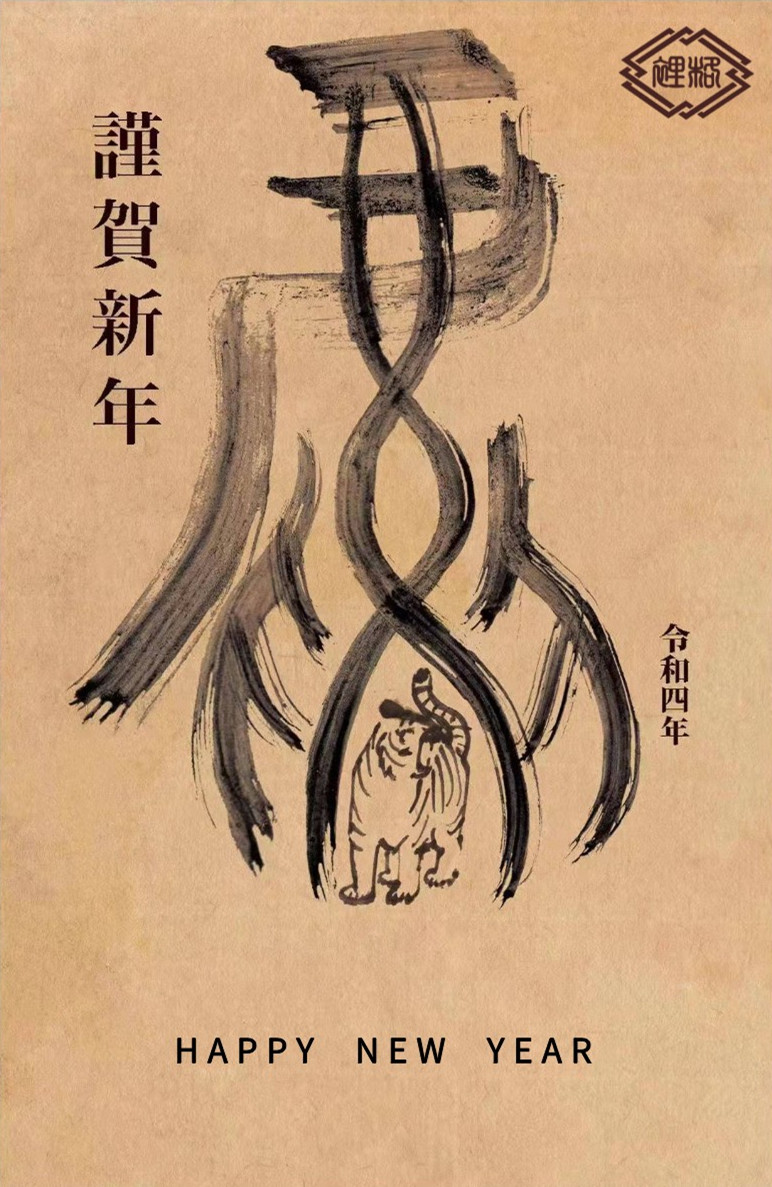 謹賀新年
令和四年
HAPPY NEW YEAR